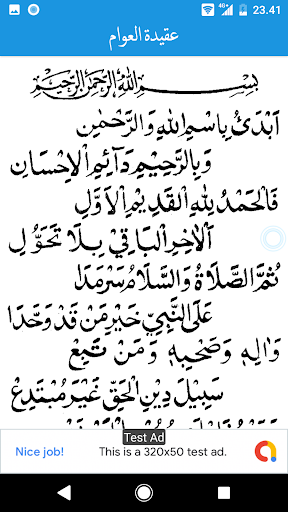 23.41
عقيدة العوام
بِسْمِ اللهِ الرَّحْمٰنِ الرَّحِيْمِ
اَبْدَئُ بِاسْمِ اللهِ وَالرَّحْمٰنِ
وَبِالرَّحِيْمِ دَآئِمِ الْاِحْسَانِ
فَالْحَمْدُ لِلّٰهِ الْقَدِيْمِ الْاَوَّلِ
اَلْاٰخِرِ الْبَاقِيْ بِلَا تَحَوُّلِ
ثُمَّ الصَّلَاةُ وَالسَّلَامُ سَرْمَدَا
عَلَى النَّبِيِّ خَيْرِ مَنْ قَدْ وَحَّدَا
وَاٰلِهٖ وَصَحْبِهٖ وَمَنْ تَبِعْ
سَبِيْلَ دِيْنِ الْحَقِّ غَيْرَ مُبْتَدِعْ
Test Ad
Nice job! This is a 320x50 test ad.